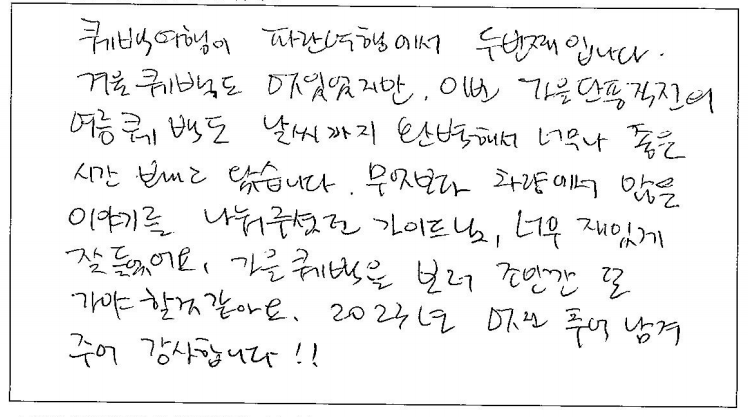 퀘백여행이 파란여행에서 두번째입니다.
겨울퀘백도 멋있었지만, 이번 가을단풍직전의
여름퀘백도 날씨까지 완벽해서 너무나 좋은
시간 보내고 왔습니다. 무엇보다 차량에서 많은
이야기를 나눠주셨던 가이드님, 너무 재밌게
잘 들었어요, 가을퀘백을 보러 조만간 또
가야할것같아요. 2023년 멋진 추억 남겨
주어 감사합니다!!